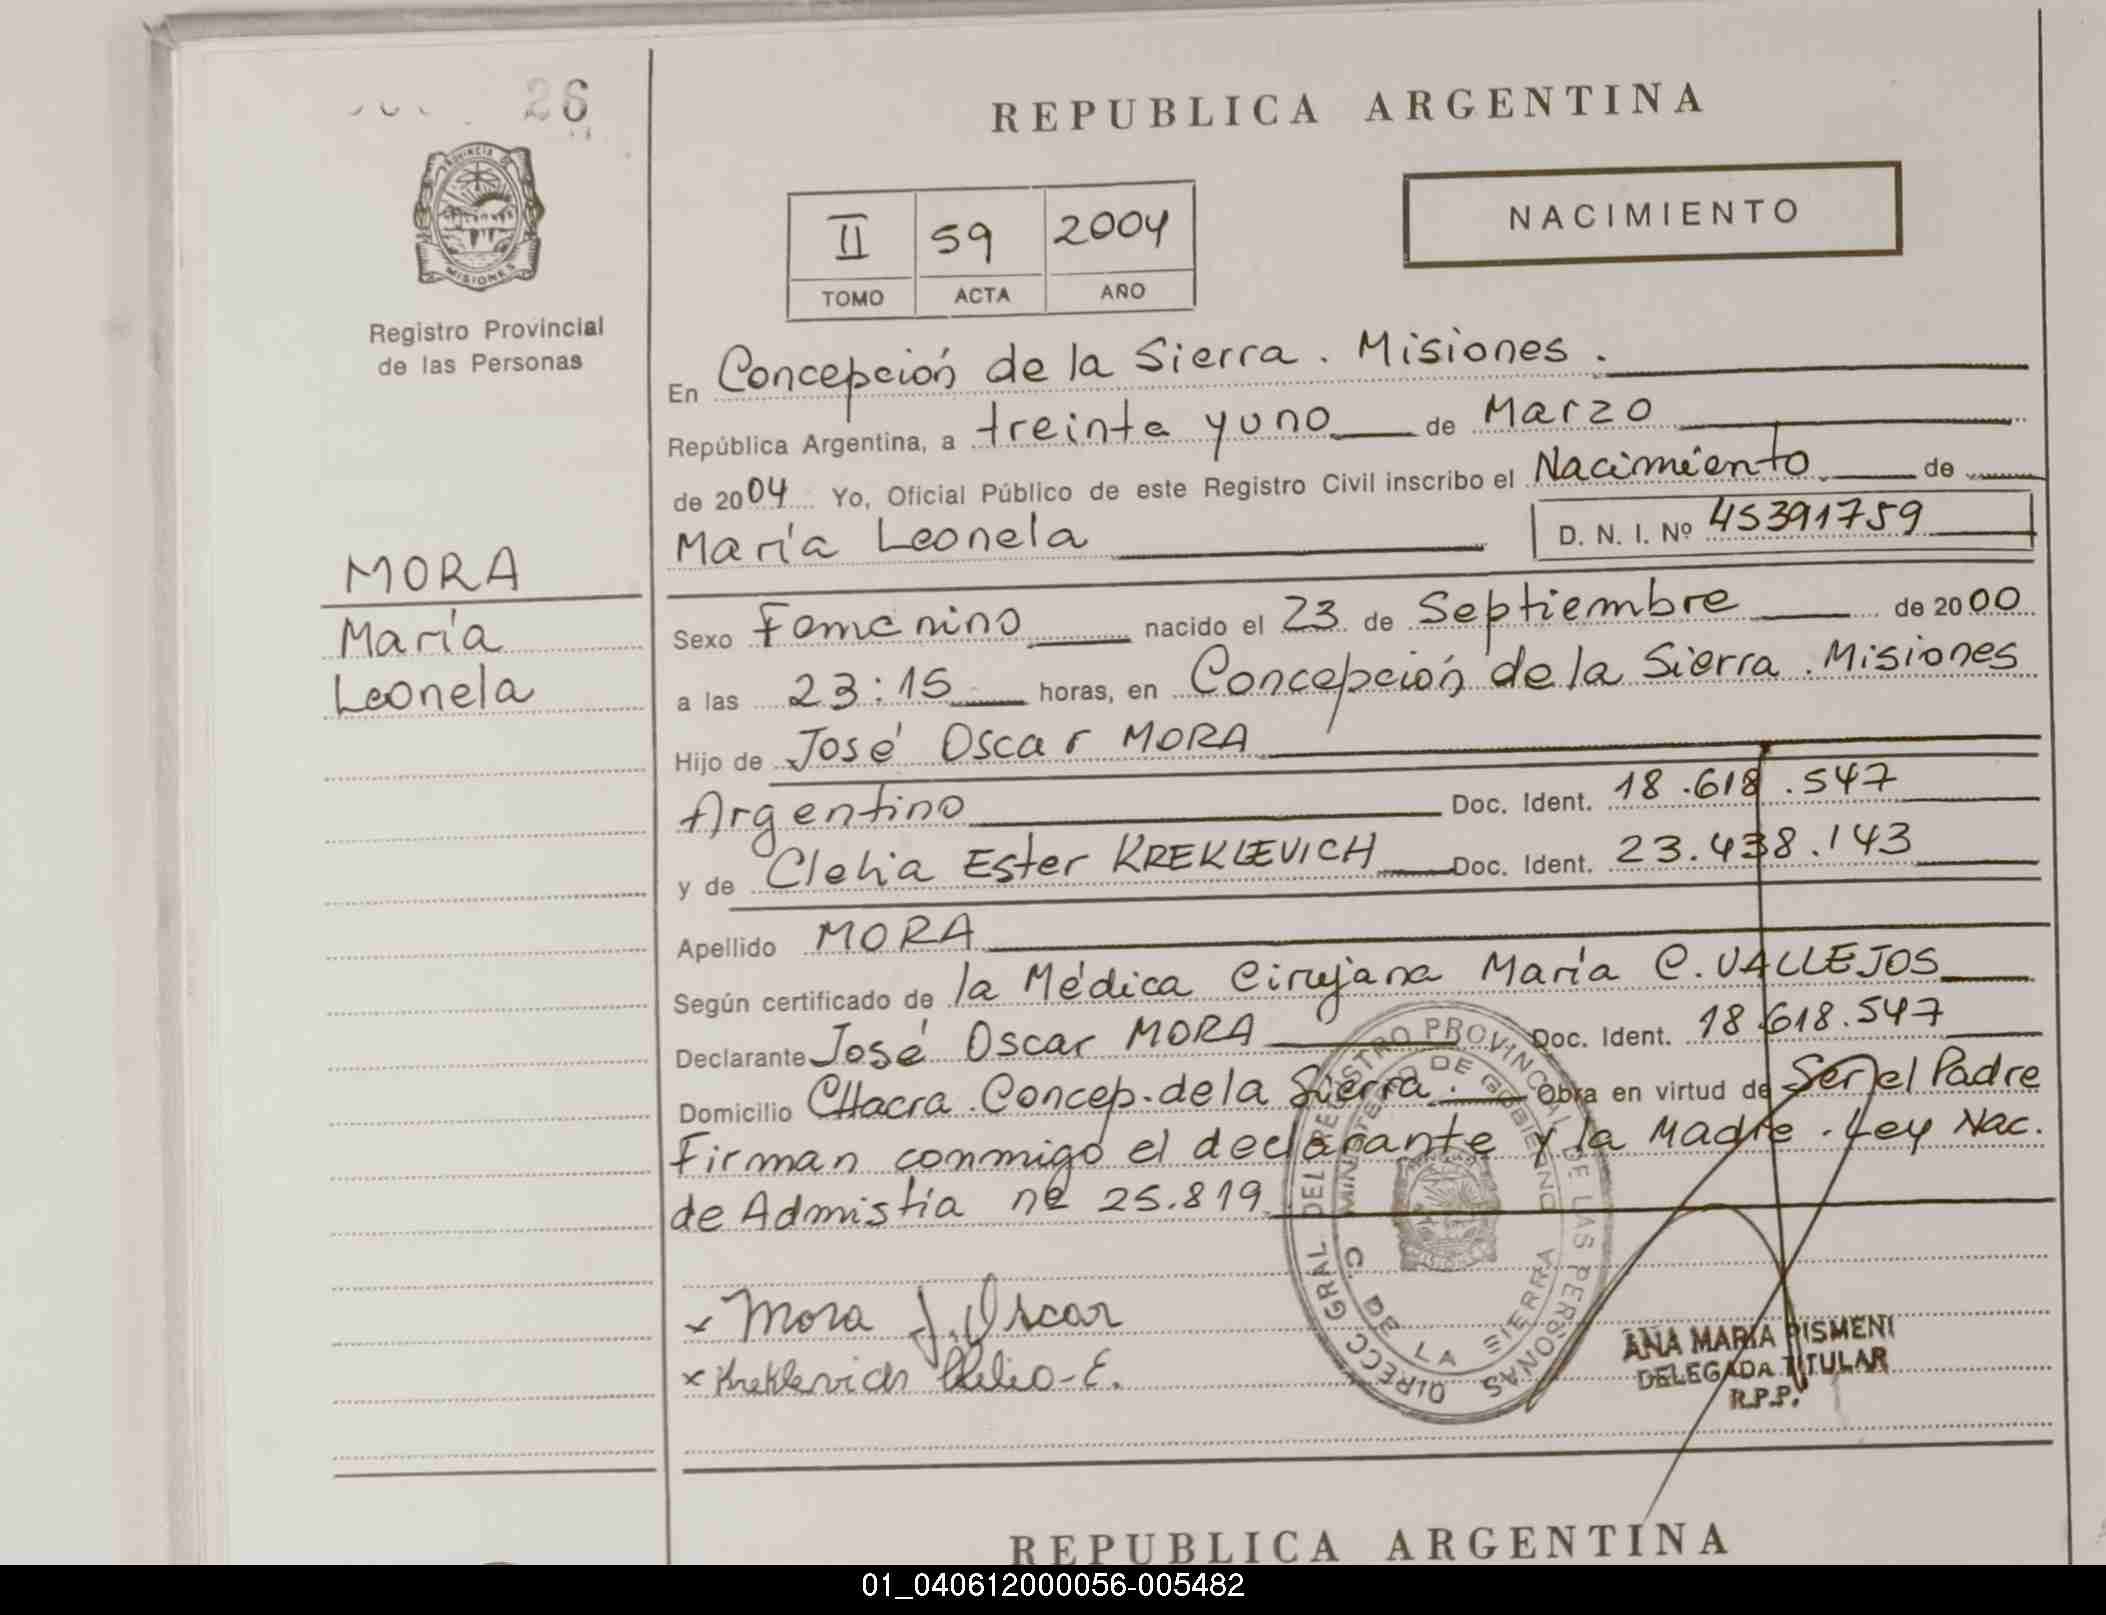 26
REPUBLICA ARGENTINA
PROVINCIA DE
MISIONES
Registro Provincial
de las Personas
II 59 2004
TOMO ACTA AÑO
NACIMIENTO
En Concepción de la Sierra. Misiones.
República Argentina, a treinta y uno de Marzo
de 2004 Yo, Oficial Público de este Registro Civil inscribo el Nacimiento de
María Leonela D. N. I. Nº 45391759
MORA
María
Leonela
Sexo Femenino nacido el 23 de Septiembre de 2000
a las 23:15 horas, en Concepción de la Sierra. Misiones
Hijo de José Oscar MORA
Argentino Doc. Ident. 18.618.547
y de Clelia Ester KREKLEVICH Doc. Ident. 23.438.143
Apellido MORA
Según certificado de la Médica Cirujana María C. VALLEJOS
Declarante José Oscar MORA Doc. Ident. 18.618.547
Domicilio CHacra. Concep. de la Sierra. Obra en virtud de Ser el Padre
Firman conmigo el declarante y la Madre. Ley Nac.
de Admistía nº 25.819
x Mora J. Oscar
x Kreklevich Clelia-E.
DIRECC GRAL DEL REGISTRO PROVINCIAL DE LAS PERSONAS
MINISTERIO DE GOBIERNO
C. DE LA SIERRA
ANA MARIA PISMENI
DELEGADA TITULAR
R.P.P.
REPUBLICA ARGENTINA
01_040612000056-005482